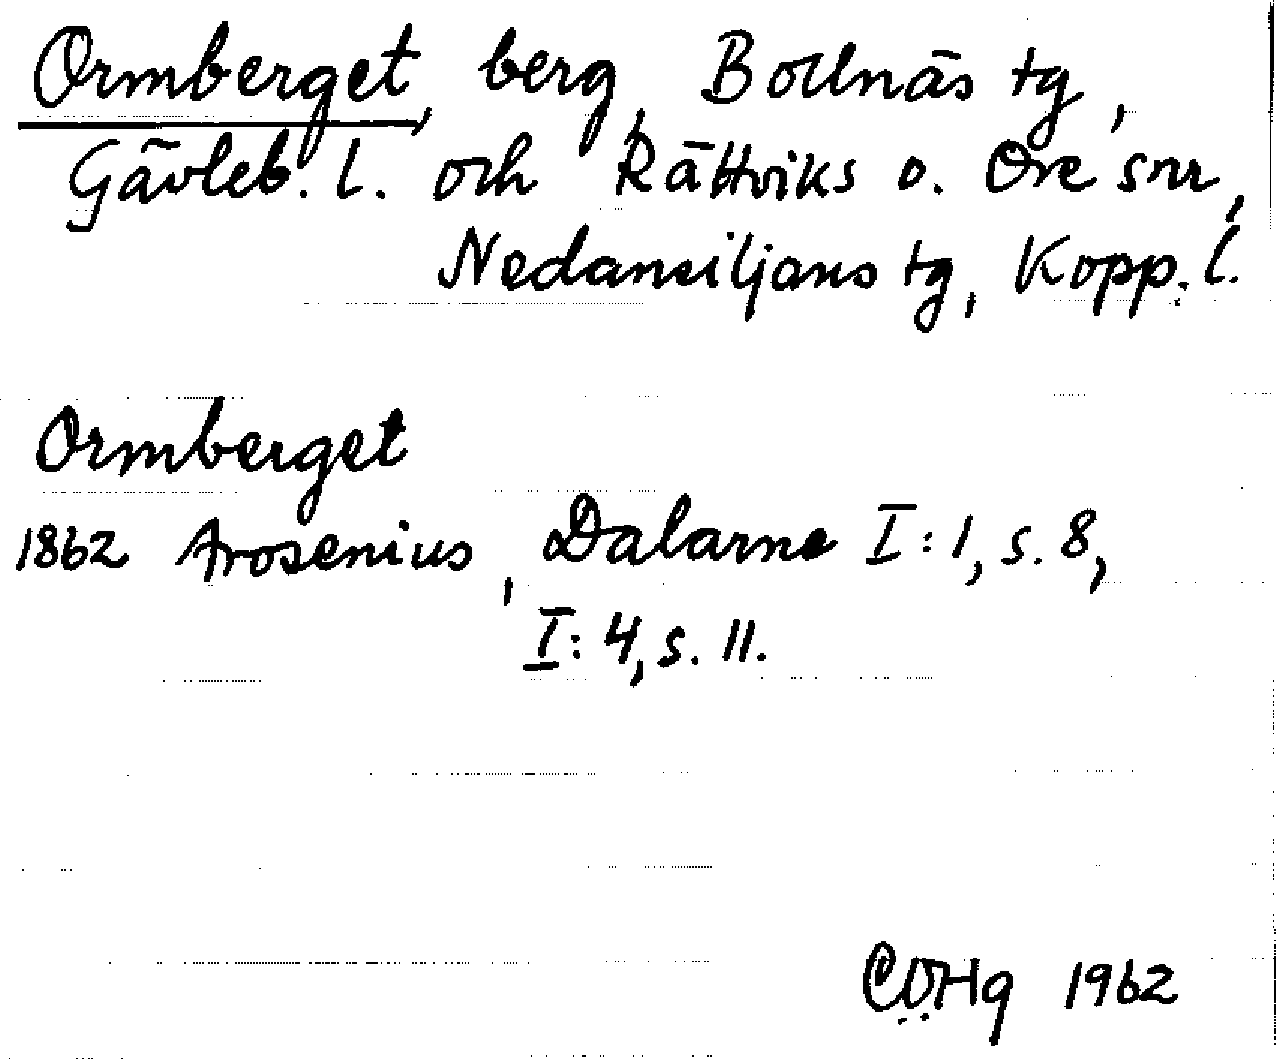 Ormberget, berg, Bollnäs tg,
Gävleb. l. och Rättviks o. Ore snr,
Nedansiljans tg, Kopp. l.
Ormberget
1862 Arosenius, Dalarne I:1, s. 8,
I:4, s. 11.
COHg 1962